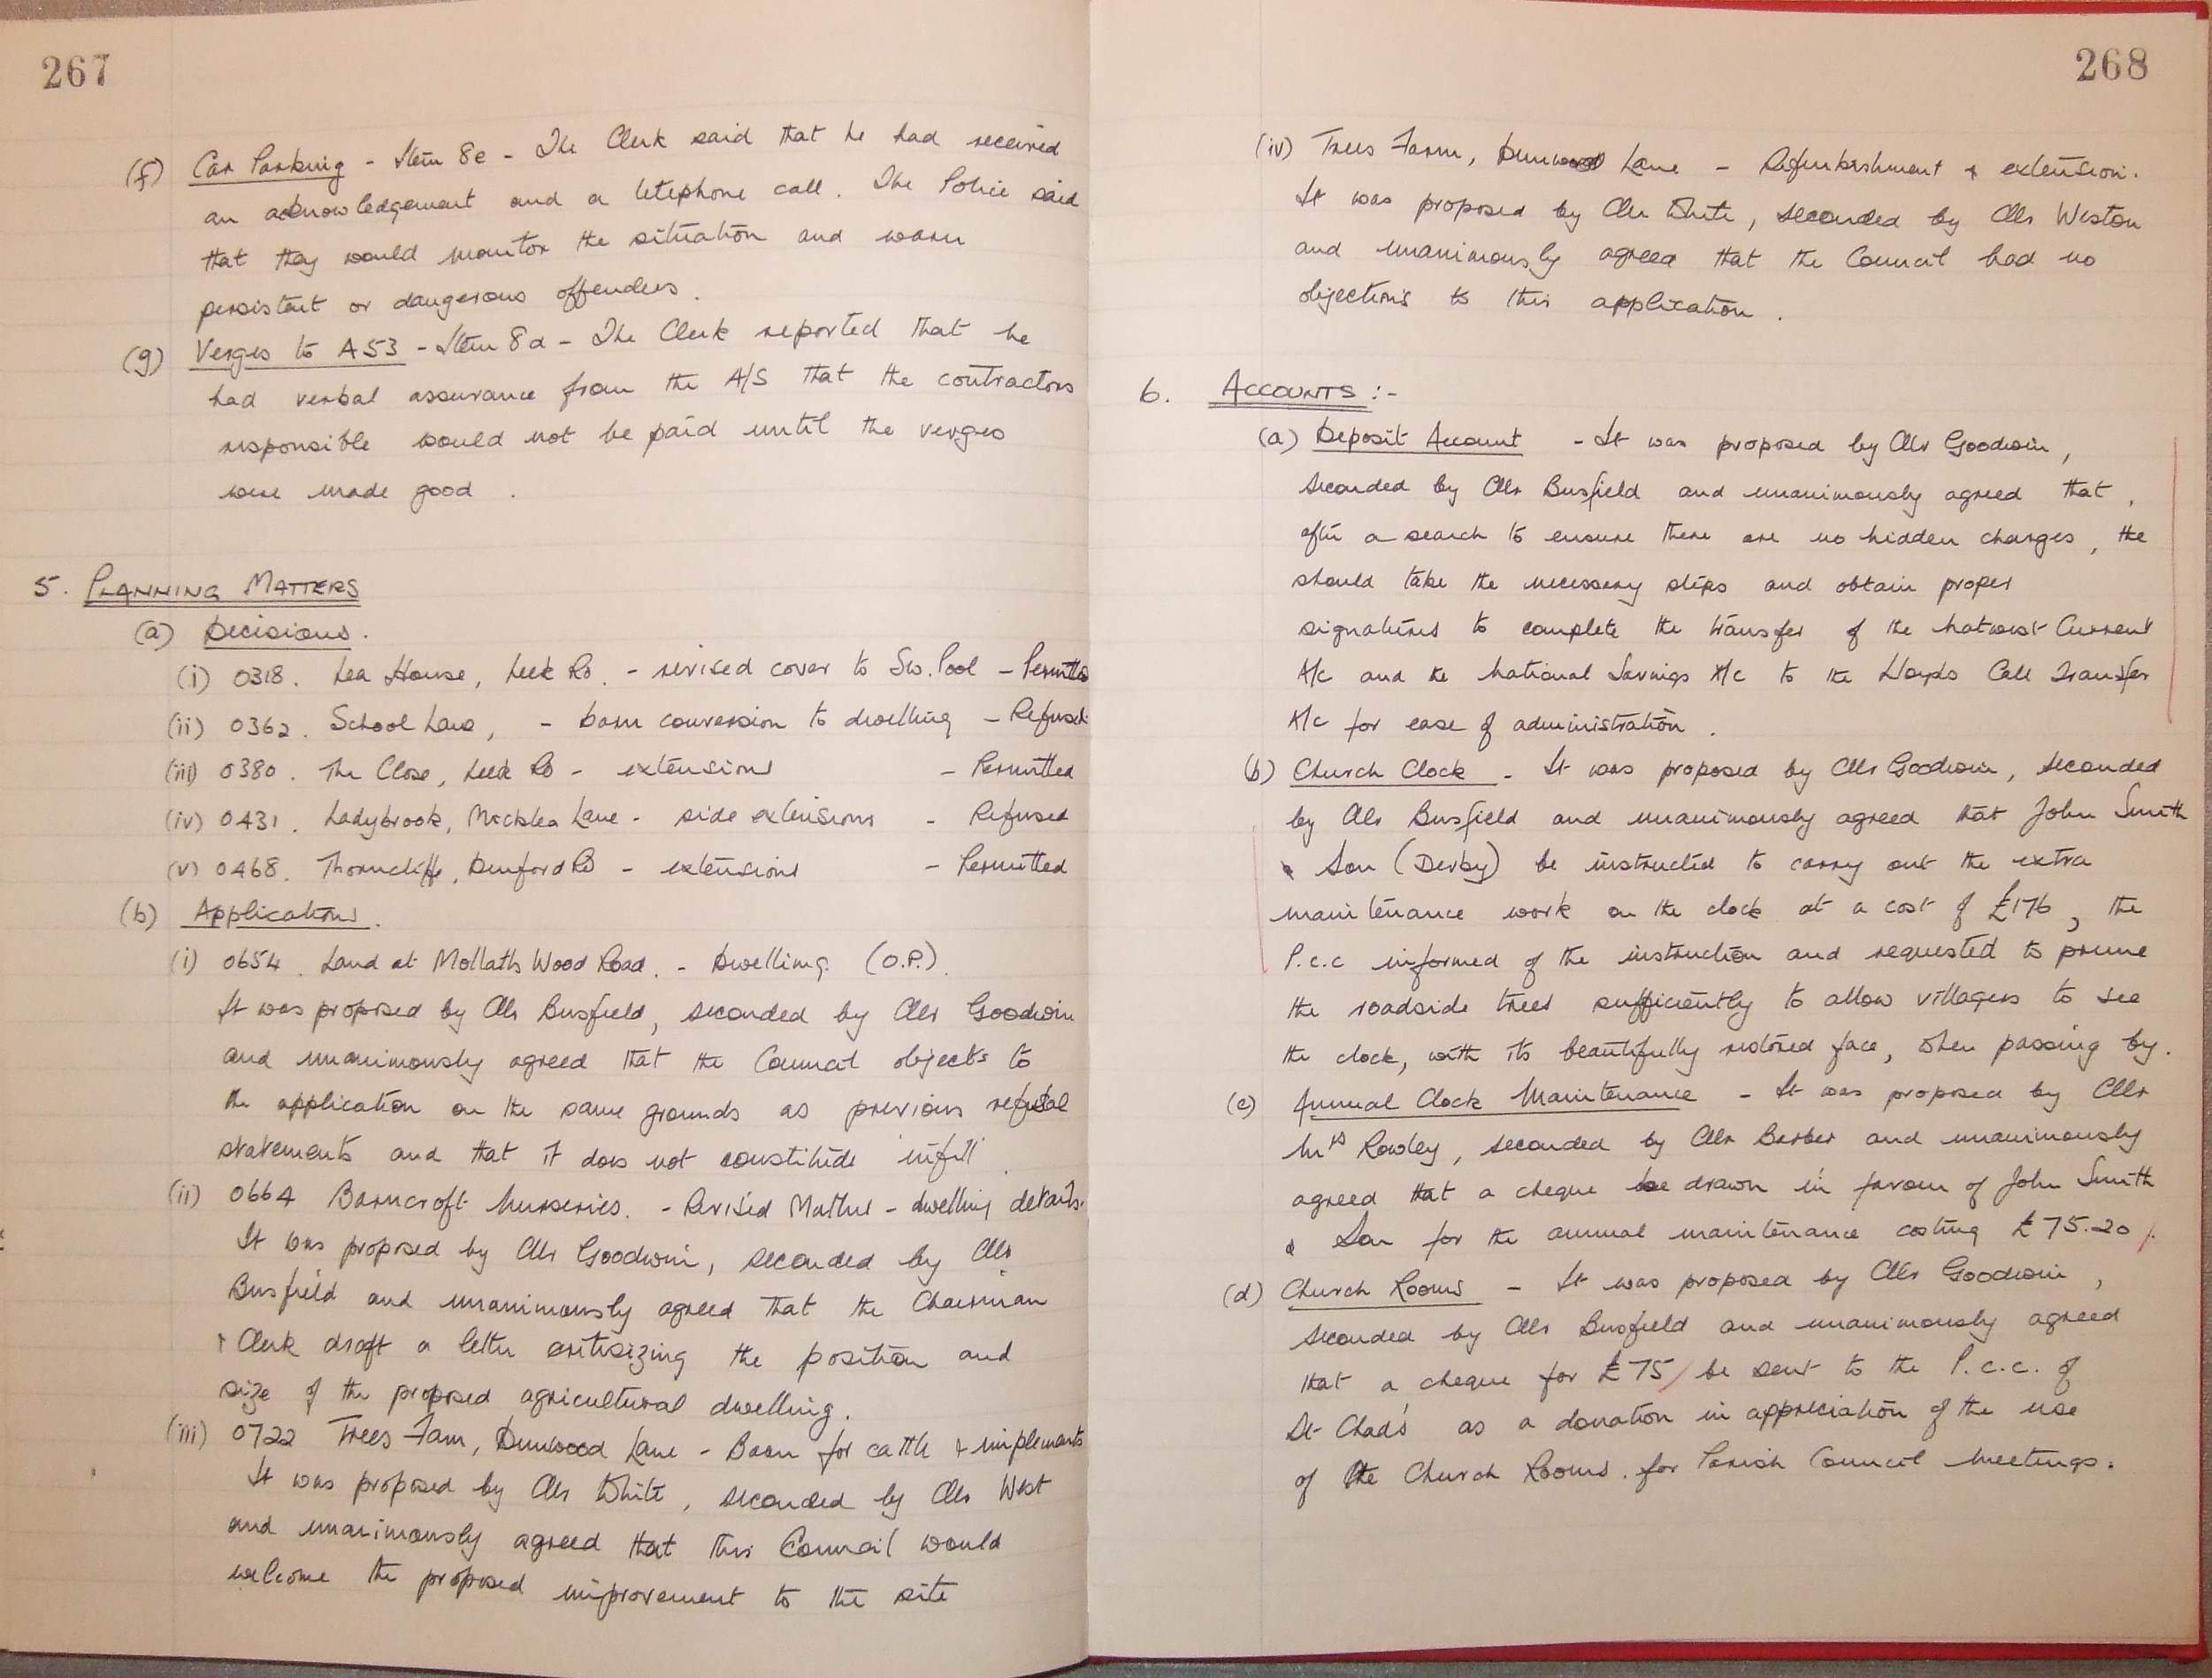 267
(f) Car Parking - Item 8e - The Clerk said that he had received
an acknowledgement and a telephone call. The Police said
that they would monitor the situation and warn
persistent or dangerous offenders.
(g) Verges to A53 - Item 8d - The Clerk reported that he
had verbal assurance from the A/S that the contractors
responsible would not be paid until the verges
were made good.
5. PLANNING MATTERS
(a) Decisions.
(i) 0318. Lea House, Leek Rd. - revised cover to Sw. Pool - Permitted
(ii) 0362. School Lane, - barn conversion to dwelling - Refused
(iii) 0380. The Close, Leek Rd - extensions - Permitted
(iv) 0431. Ladybrook, Micklea Lane - side extensions - Refused
(v) 0468. Thorncliffe, Denford Rd - extensions - Permitted
(b) Applications.
(i) 0654. Land at Mollatts Wood Road. - Dwelling. (O.P.).
It was proposed by Cllr Busfield, seconded by Cllr Goodwin
and unanimously agreed that the Council objects to
the application on the same grounds as previous refusal
statements and that it does not constitute 'infill'.
(ii) 0664 Barncroft Nurseries. - Revised Matters - dwelling details.
It was proposed by Cllr Goodwin, seconded by Cllr
Busfield and unanimously agreed that the Chairman
+ Clerk draft a letter critisizing the position and
size of the proposed agricultural dwelling.
(iii) 0722 Trees Farm, Dunwood Lane - Barn for cattle + implements
It was proposed by Cllr White, seconded by Cllr West
and unanimously agreed that this Council would
welcome the proposed improvement to the site
268
(iv) Trees Farm, Dunwood Lane - Refurbishment + extension.
It was proposed by Cllr White, seconded by Cllr Weston
and unanimously agreed that the Council had no
objections to this application.
6. ACCOUNTS :-
(a) Deposit Account - It was proposed by Cllr Goodwin,
seconded by Cllr Busfield and unanimously agreed that,
after a search to ensure there are no hidden charges, the
should take the necessary steps and obtain proper
signatures to complete the transfer of the Natwest Current
A/c and the National Savings A/c to the Lloyds Call Transfer
A/c for ease of administration.
(b) Church Clock - It was proposed by Cllr Goodwin, seconded
by Cllr Busfield and unanimously agreed that John Smith
& Son (Derby) be instructed to carry out the extra
maintenance work on the clock at a cost of £176, the
P.c.c informed of the instruction and requested to prune
the roadside trees sufficiently to allow villagers to see
the clock, with its beautifully restored face, when passing by.
(c) Annual Clock Maintenance - It was proposed by Cllr
Mrs Rowley, seconded by Cllr Barber and unanimously
agreed that a cheque be drawn in favour of John Smith
& Son for the annual maintenance costing £75.20.
(d) Church Rooms - It was proposed by Cllr Goodwin,
seconded by Cllr Busfield and unanimously agreed
that a cheque for £75 be sent to the P.c.c. of
St Chad's as a donation in appreciation of the use
of the Church Rooms for Parish Council Meetings.